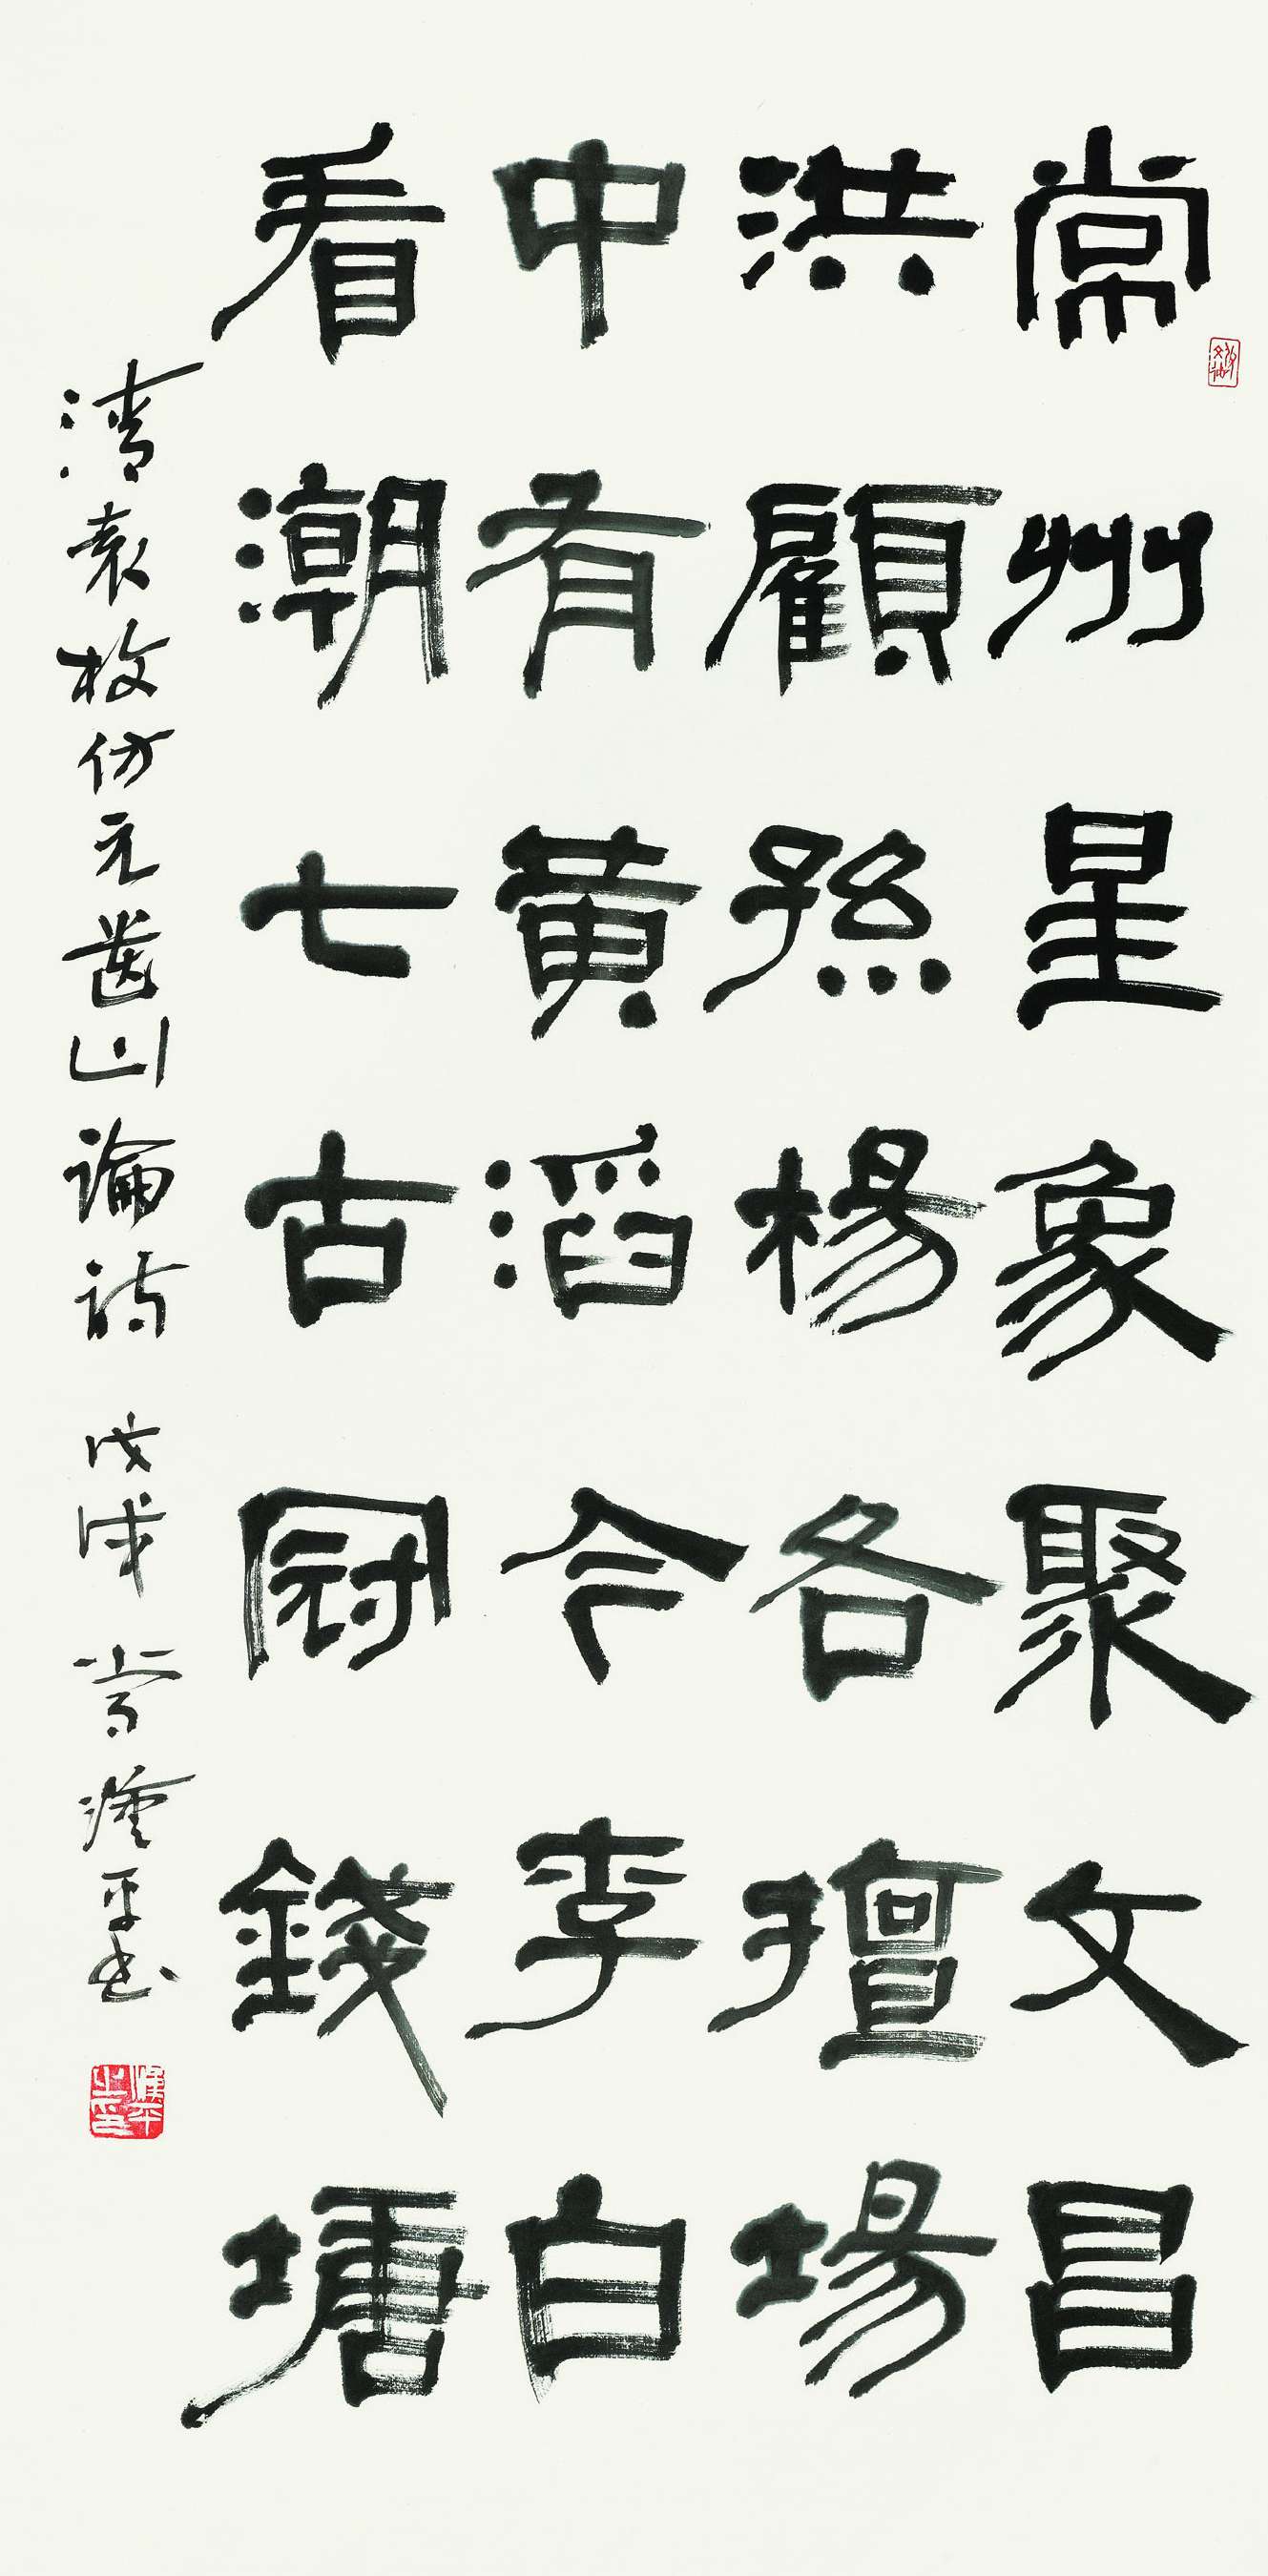 常州星象聚文昌
洪顧孫楊各擅場
中有黃滔今李白
看潮七古冠錢塘
清袁枚仿元遺山論詩 戊戌 常漢平書
漢平之印